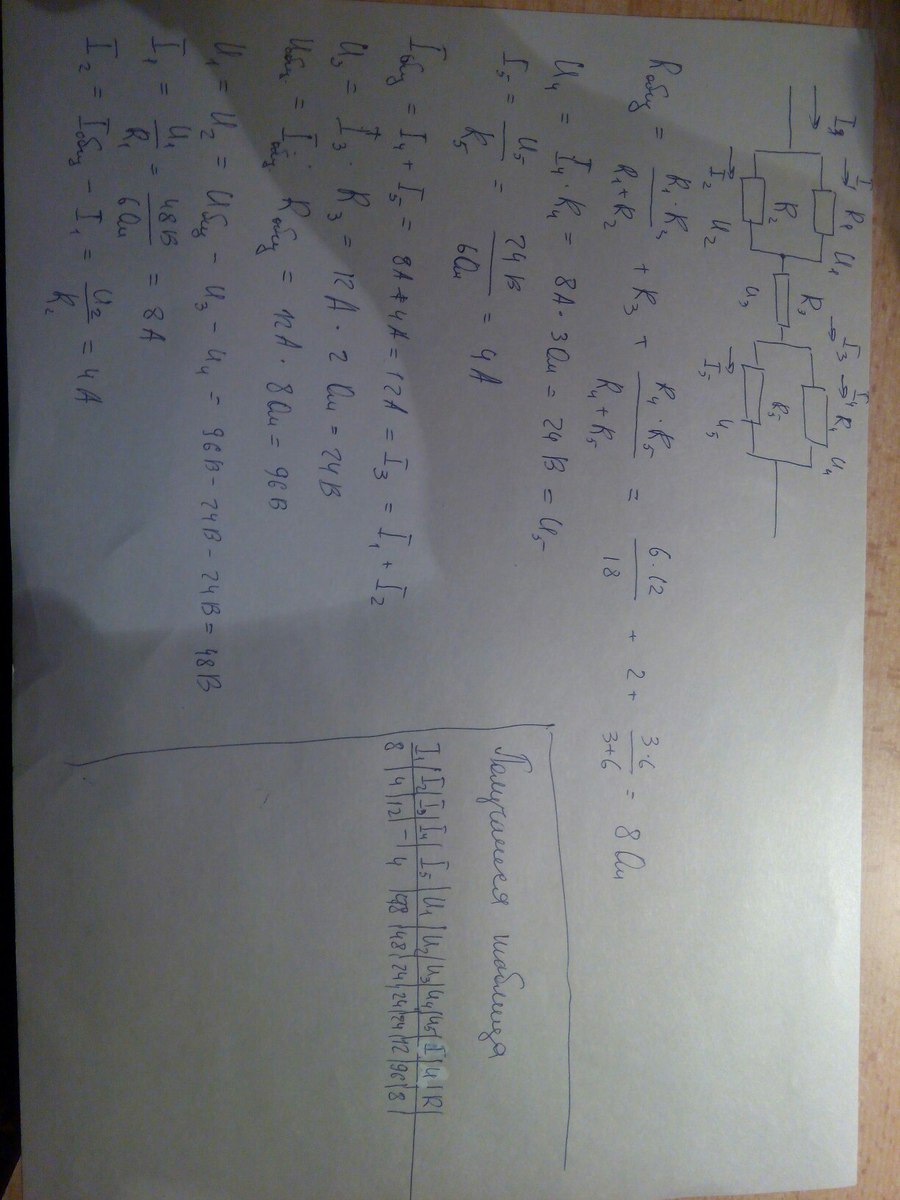 I₁ R₁ U₁ I₃ I₄ R₄ U₄
I₂ U₂ R₂ U₃ R₃ I₅ R₅ U₅
Rобщ = R₁·R₂/(R₁+R₂) + R₃ + R₄·R₅/(R₄+R₅) = 6·12/18 + 2 + 3·6/(3+6) = 8 Ом
U₄ = I₄·R₄ = 8A·3Ом = 24 В = U₅
I₅ = U₅/R₅ = 24В/6Ом = 4 А
Iобщ = I₄ + I₅ = 8А+4А = 12А = I₃ = I₁ + I₂
U₃ = I₃·R₃ = 12А·2 Ом = 24В
Uобщ = Iобщ·Rобщ = 12А·8Ом = 96В
U₁ = U₂ = Uобщ - U₃ - U₄ = 96В - 24В - 24В = 48В
I₁ = U₁/R₁ = 48В/6Ом = 8А
I₂ = Iобщ - I₁ = U₂/R₂ = 4А
Получается таблица
I₁|I₂|I₃|I₄|I₅|U₁|U₂|U₃|U₄|U₅|I|U|R|
8|4|12|-|4|48|48|24|24|24|12|96|8|